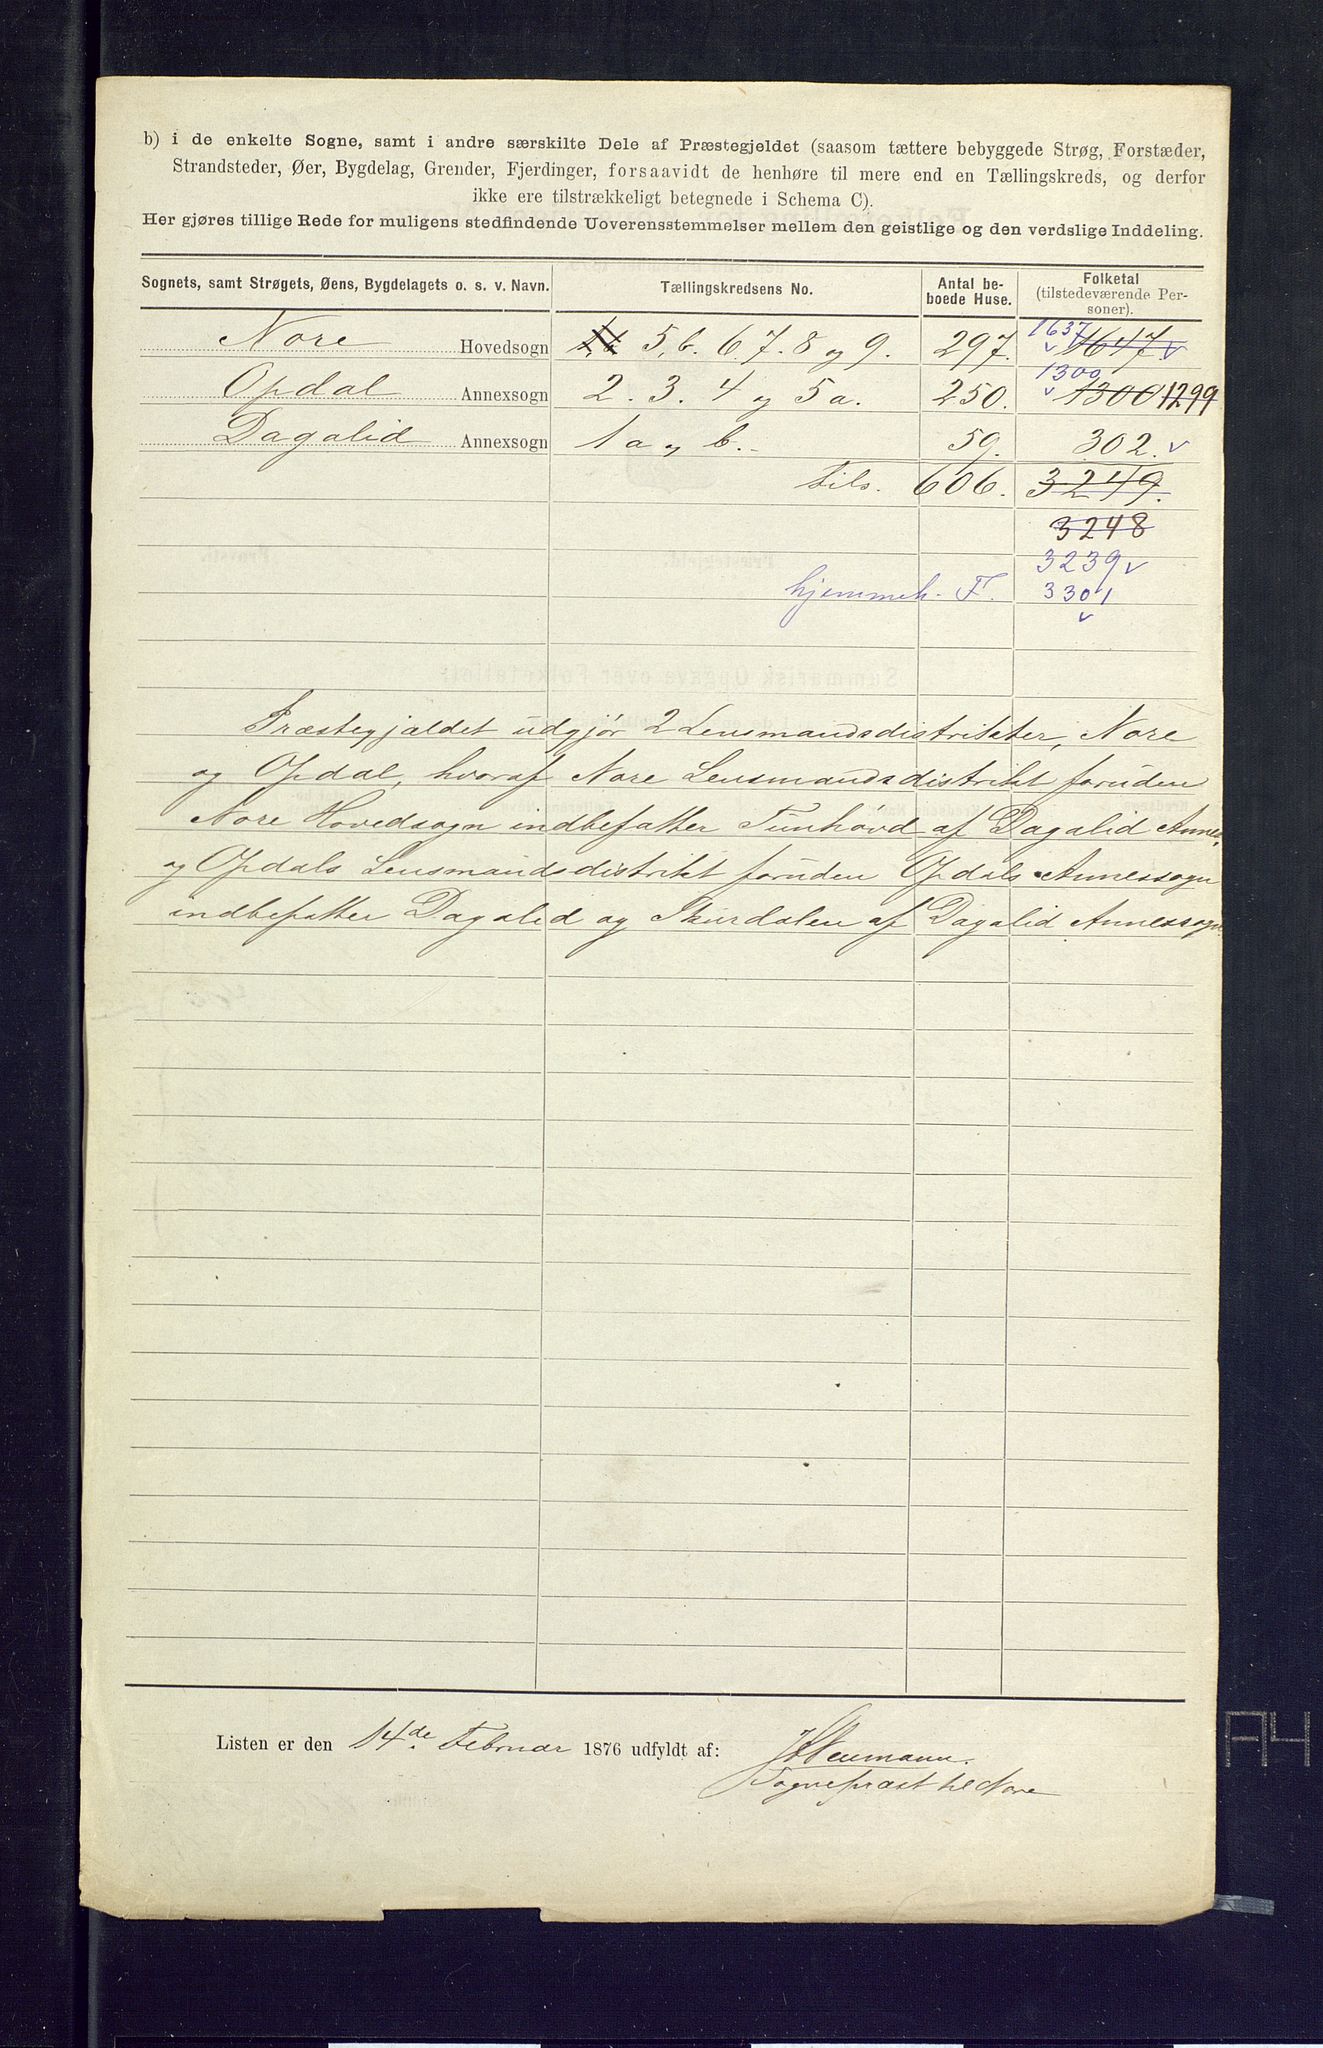 b) i de enkelte Sogne, samt i andre særskilte Dele af Præstegjeldet (saasom tættere bebyggede Strøg, Forstæder,
Strandsteder, Øer, Bygdelag, Grender, Fjerdinger, forsaavidt de henhøre til mere end en Tællingskreds, og derfor
ikke ere tilstrækkeligt betegnede i Schema C).
Her gjøres tillige Rede for muligens stedfindende Uoverensstemmelser mellem den geistlige og den verdslige Inddeling.
Sognets, samt Strøgets, Øens, Bygdelagets o. s. v. Navn. Tællingskredsens No. Antal beboede Huse. Folketal (tilstedeværende Personer).
1637
Nore Hovedsogn 5, b. 6. 7. 8 og 9. 297. v 1647. v
1300
Opdal Annexsogn 2. 3. 4 og 5a. 250. v 1300 1299
Dagalid Annexsogn 1 a og b. 59. 302. v
Tils. 606. 3249.
3248
3239 v
hjemmeh. F. 3301
v
Præstegjældet udgjør 2 Lensmandsdistrikter, Nore
og Opdal, hvoraf Nore Lensmandsdistrikt foruden
Nore Hovedsogn indbefatter Tunhövd af Dagalid Annex,
og Opdals Lensmandsdistrikt foruden Opdals Annexsogn
indbefatter Dagalid og Skurdalen af Dagalid Annexsogn.
Listen er den 14de Februar 1876 udfyldt af: Neumann.
Sognepræst til Nore
A4